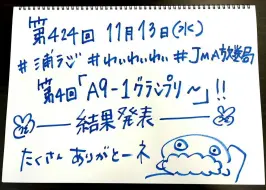 第424回 11月13日(水)
#浦ラジ #わいわいわい #JMA放送局
第4回「A9-1グランプリ~」!!
結果発表
たくさん ありがとーネ